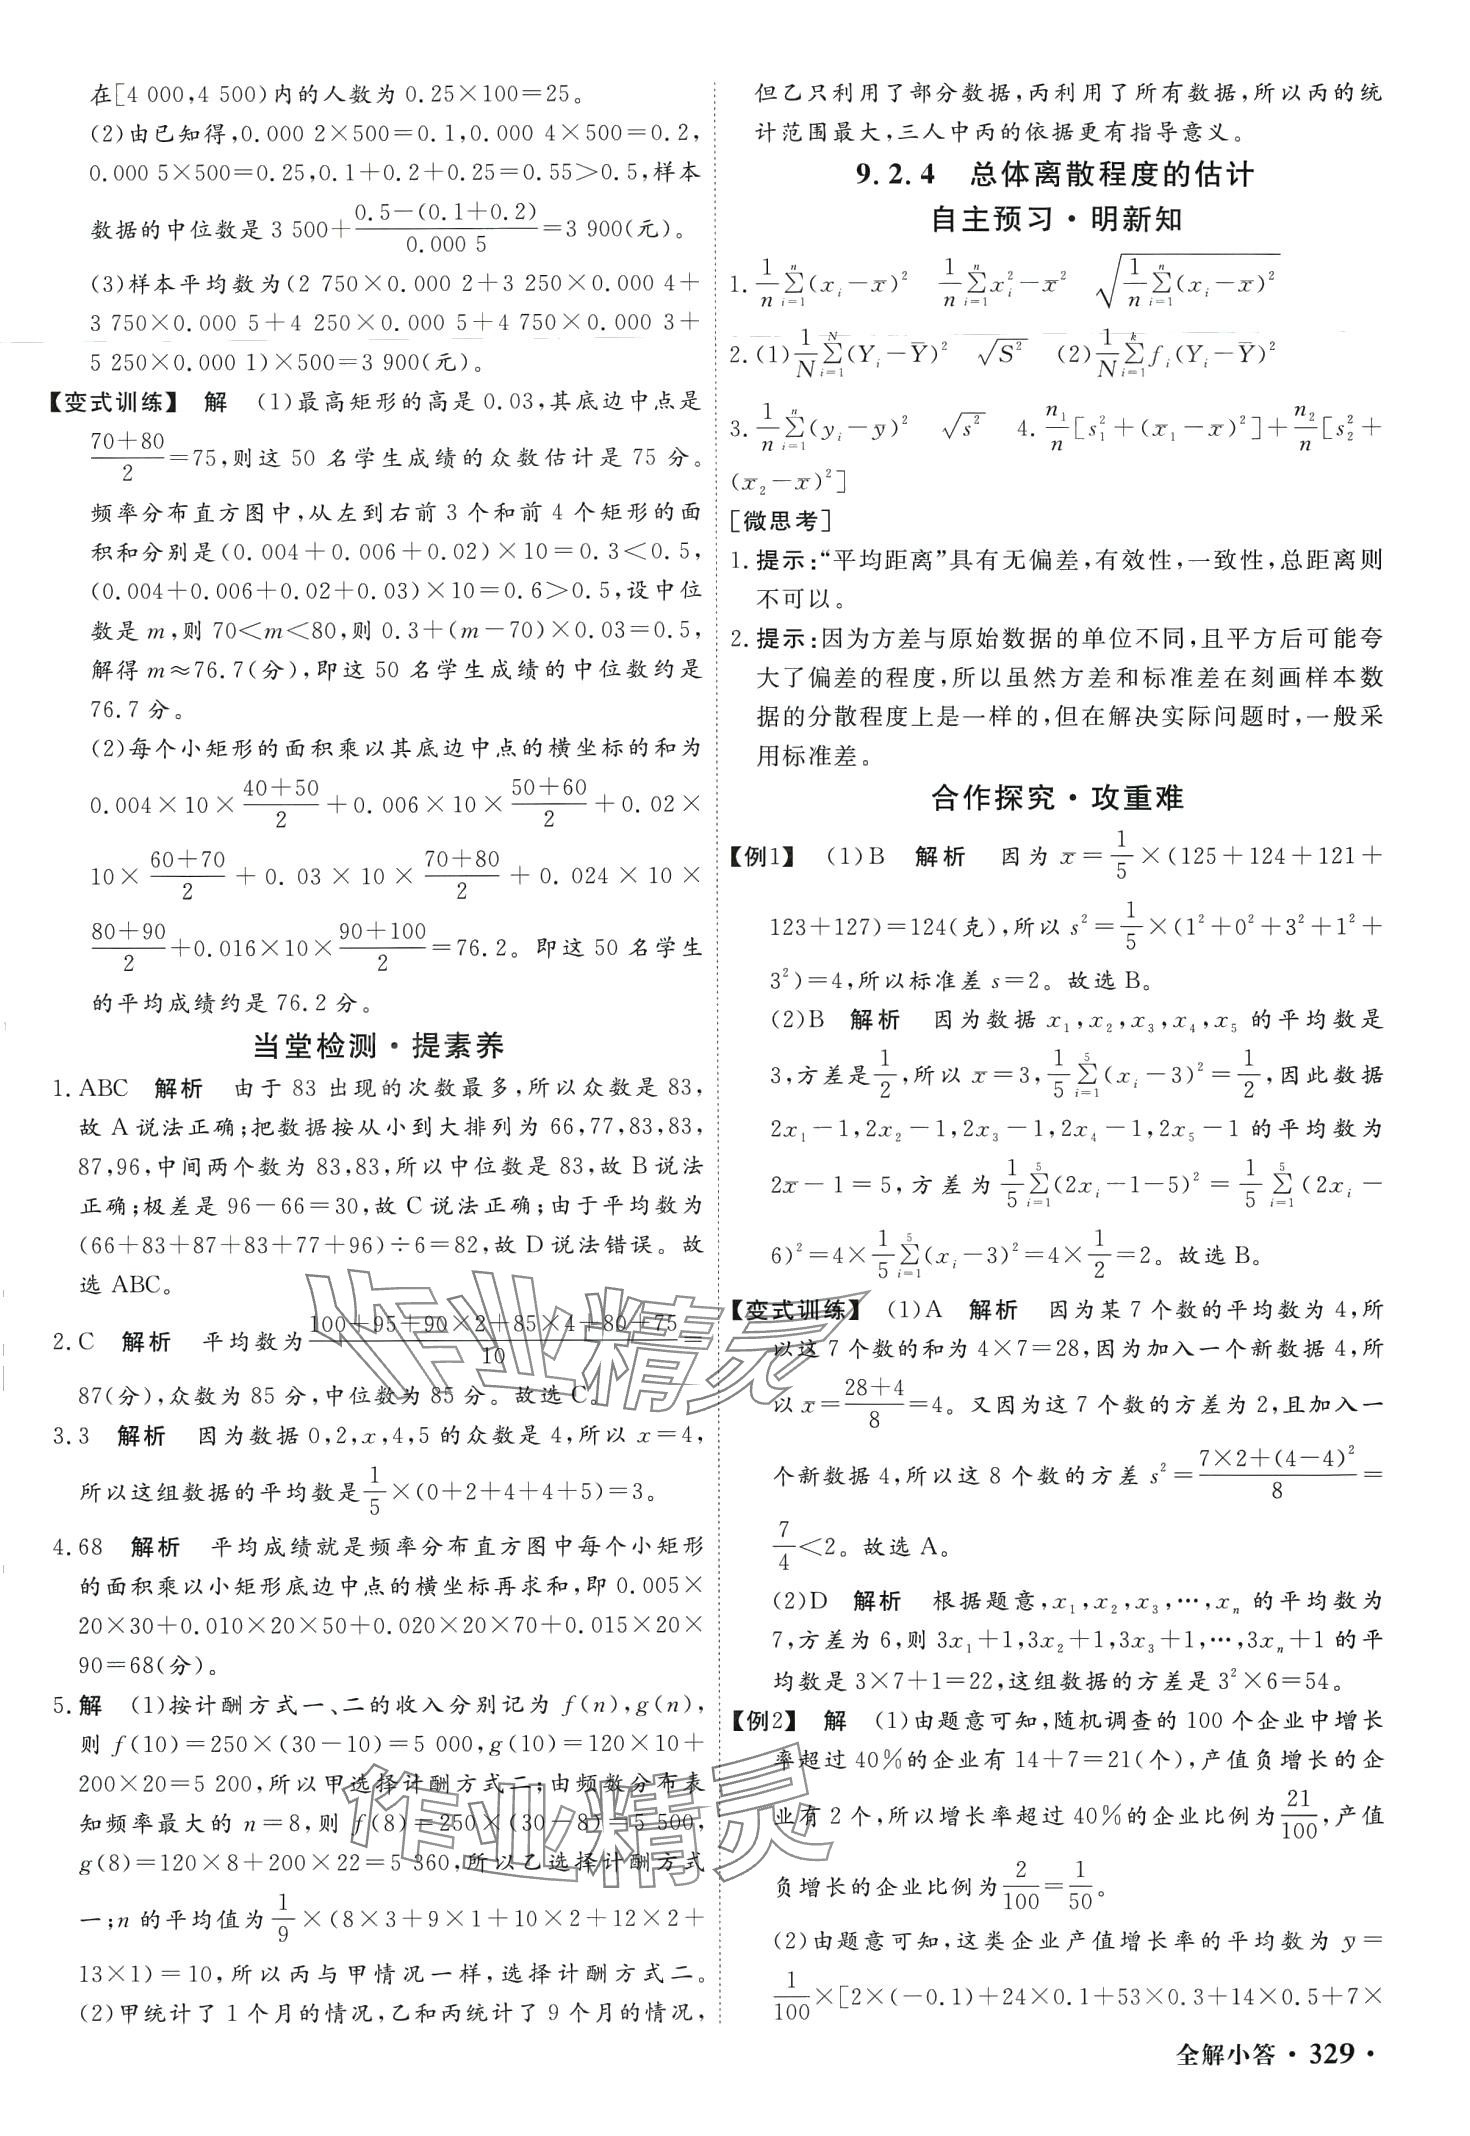 在[4 000,4 500)内的人数为 0.25×100=25。
(2)由已知得,0.000 2×500=0.1,0.000 4×500=0.2,
0.000 5×500=0.25,0.1+0.2+0.25=0.55>0.5,样本
数据的中位数是 3 500+\frac{0.5-(0.1+0.2)}{0.000 5}=3 900(元)。
(3)样本平均数为(2 750×0.000 2+3 250×0.000 4+
3 750×0.000 5+4 250×0.000 5+4 750×0.000 3+
5 250×0.000 1)×500=3 900(元)。
【变式训练】 解 (1)最高矩形的高是 0.03,其底边中点是
\frac{70+80}{2}=75,则这 50 名学生成绩的众数估计是 75 分。
频率分布直方图中,从左到右前 3 个和前 4 个矩形的面
积和分别是(0.004+0.006+0.02)×10=0.3<0.5,
(0.004+0.006+0.02+0.03)×10=0.6>0.5,设中位
数是 m,则 70<m<80,则 0.3+(m-70)×0.03=0.5,
解得 m≈76.7(分),即这 50 名学生成绩的中位数约是
76.7 分。
(2)每个小矩形的面积乘以其底边中点的横坐标的和为
0.004×10×\frac{40+50}{2}+0.006×10×\frac{50+60}{2}+0.02×
10×\frac{60+70}{2}+0.03×10×\frac{70+80}{2}+0.024×10×
\frac{80+90}{2}+0.016×10×\frac{90+100}{2}=76.2。即这 50 名学生
的平均成绩约是 76.2 分。
当堂检测·提素养
1.ABC 解析 由于 83 出现的次数最多,所以众数是 83,
故 A 说法正确;把数据按从小到大排列为 66,77,83,83,
87,96,中间两个数为 83,83,所以中位数是 83,故 B 说法
正确;极差是 96-66=30,故 C 说法正确;由于平均数为
(66+83+87+83+77+96)÷6=82,故 D 说法错误。故
选 ABC。
2.C 解析 平均数为\frac{100+95+90×2+85×4+80+75}{10}=
87(分),众数为 85 分,中位数为 85 分。故选 C。
3.3 解析 因为数据 0,2,x,4,5 的众数是 4,所以 x=4,
所以这组数据的平均数是\frac{1}{5}×(0+2+4+4+5)=3。
4.68 解析 平均成绩就是频率分布直方图中每个小矩形
的面积乘以小矩形底边中点的横坐标再求和,即 0.005×
20×30+0.010×20×50+0.020×20×70+0.015×20×
90=68(分)。
5.解 (1)按计酬方式一、二的收入分别记为 f(n),g(n),
则 f(10)=250×(30-10)=5 000,g(10)=120×10+
200×20=5 200,所以甲选择计酬方式二;由频数分布表
知频率最大的 n=8,则 f(8)=250×(30-8)=5 500,
g(8)=120×8+200×22=5 360,所以乙选择计酬方式
一;n 的平均值为\frac{1}{9}×(8×3+9×1+10×2+12×2+
13×1)=10,所以丙与甲情况一样,选择计酬方式二。
(2)甲统计了 1 个月的情况,乙和丙统计了 9 个月的情况,
但乙只利用了部分数据,丙利用了所有数据,所以丙的统
计范围最大,三人中丙的依据更有指导意义。
9.2.4 总体离散程度的估计
自主预习·明新知
1.\frac{1}{n}\sum_{i=1}^{n}(x_i-\bar{x})^2 \frac{1}{n}\sum_{i=1}^{n}x_i^2-\bar{x}^2 \sqrt{\frac{1}{n}\sum_{i=1}^{n}(x_i-\bar{x})^2}
2.(1)\frac{1}{N}\sum_{i=1}^{N}(Y_i-\bar{Y})^2 \sqrt{S^2} (2)\frac{1}{N}\sum_{i=1}^{k}f_i(Y_i-\bar{Y})^2
3.\frac{1}{n}\sum_{i=1}^{n}(y_i-\bar{y})^2 \sqrt{s^2} 4.\frac{n_1}{n}[s_1^2+(\bar{x}_1-\bar{x})^2]+\frac{n_2}{n}[s_2^2+
(\bar{x}_2-\bar{x})^2]
[微思考]
1.提示:“平均距离”具有无偏差,有效性,一致性,总距离则
不可以。
2.提示:因为方差与原始数据的单位不同,且平方后可能夸
大了偏差的程度,所以虽然方差和标准差在刻画样本数
据的分散程度上是一样的,但在解决实际问题时,一般采
用标准差。
合作探究·攻重难
【例1】 (1)B 解析 因为 \bar{x}=\frac{1}{5}×(125+124+121+
123+127)=124(克),所以 s^2=\frac{1}{5}×(1^2+0^2+3^2+1^2+
3^2)=4,所以标准差 s=2。故选 B。
(2)B 解析 因为数据 x_1,x_2,x_3,x_4,x_5 的平均数是
3,方差是\frac{1}{2},所以 \bar{x}=3,\frac{1}{5}\sum_{i=1}^{5}(x_i-3)^2=\frac{1}{2},因此数据
2x_1-1,2x_2-1,2x_3-1,2x_4-1,2x_5-1 的平均数为
2\bar{x}-1=5,方差为\frac{1}{5}\sum_{i=1}^{5}(2x_i-1-5)^2=\frac{1}{5}\sum_{i=1}^{5}(2x_i-
6)^2=4×\frac{1}{5}\sum_{i=1}^{5}(x_i-3)^2=4×\frac{1}{2}=2。故选 B。
【变式训练】 (1)A 解析 因为某 7 个数的平均数为 4,所
以这 7 个数的和为 4×7=28,因为加入一个新数据 4,所
以 \bar{x}=\frac{28+4}{8}=4。又因为这 7 个数的方差为 2,且加入一
个新数据 4,所以这 8 个数的方差 s^2=\frac{7×2+(4-4)^2}{8}=
\frac{7}{4}<2。故选 A。
(2)D 解析 根据题意,x_1,x_2,x_3,…,x_n 的平均数为
7,方差为 6,则 3x_1+1,3x_2+1,3x_3+1,…,3x_n+1 的平
均数是 3×7+1=22,这组数据的方差是 3^2×6=54。
【例2】 解 (1)由题意可知,随机调查的 100 个企业中增长
率超过 40%的企业有 14+7=21(个),产值负增长的企
业有 2 个,所以增长率超过 40%的企业比例为\frac{21}{100},产值
负增长的企业比例为\frac{2}{100}=\frac{1}{50}。
(2)由题意可知,这类企业产值增长率的平均数为 \bar{y}=
\frac{1}{100}×[2×(-0.1)+24×0.1+53×0.3+14×0.5+7×
全解小答·329·
作业精灵
作业精灵